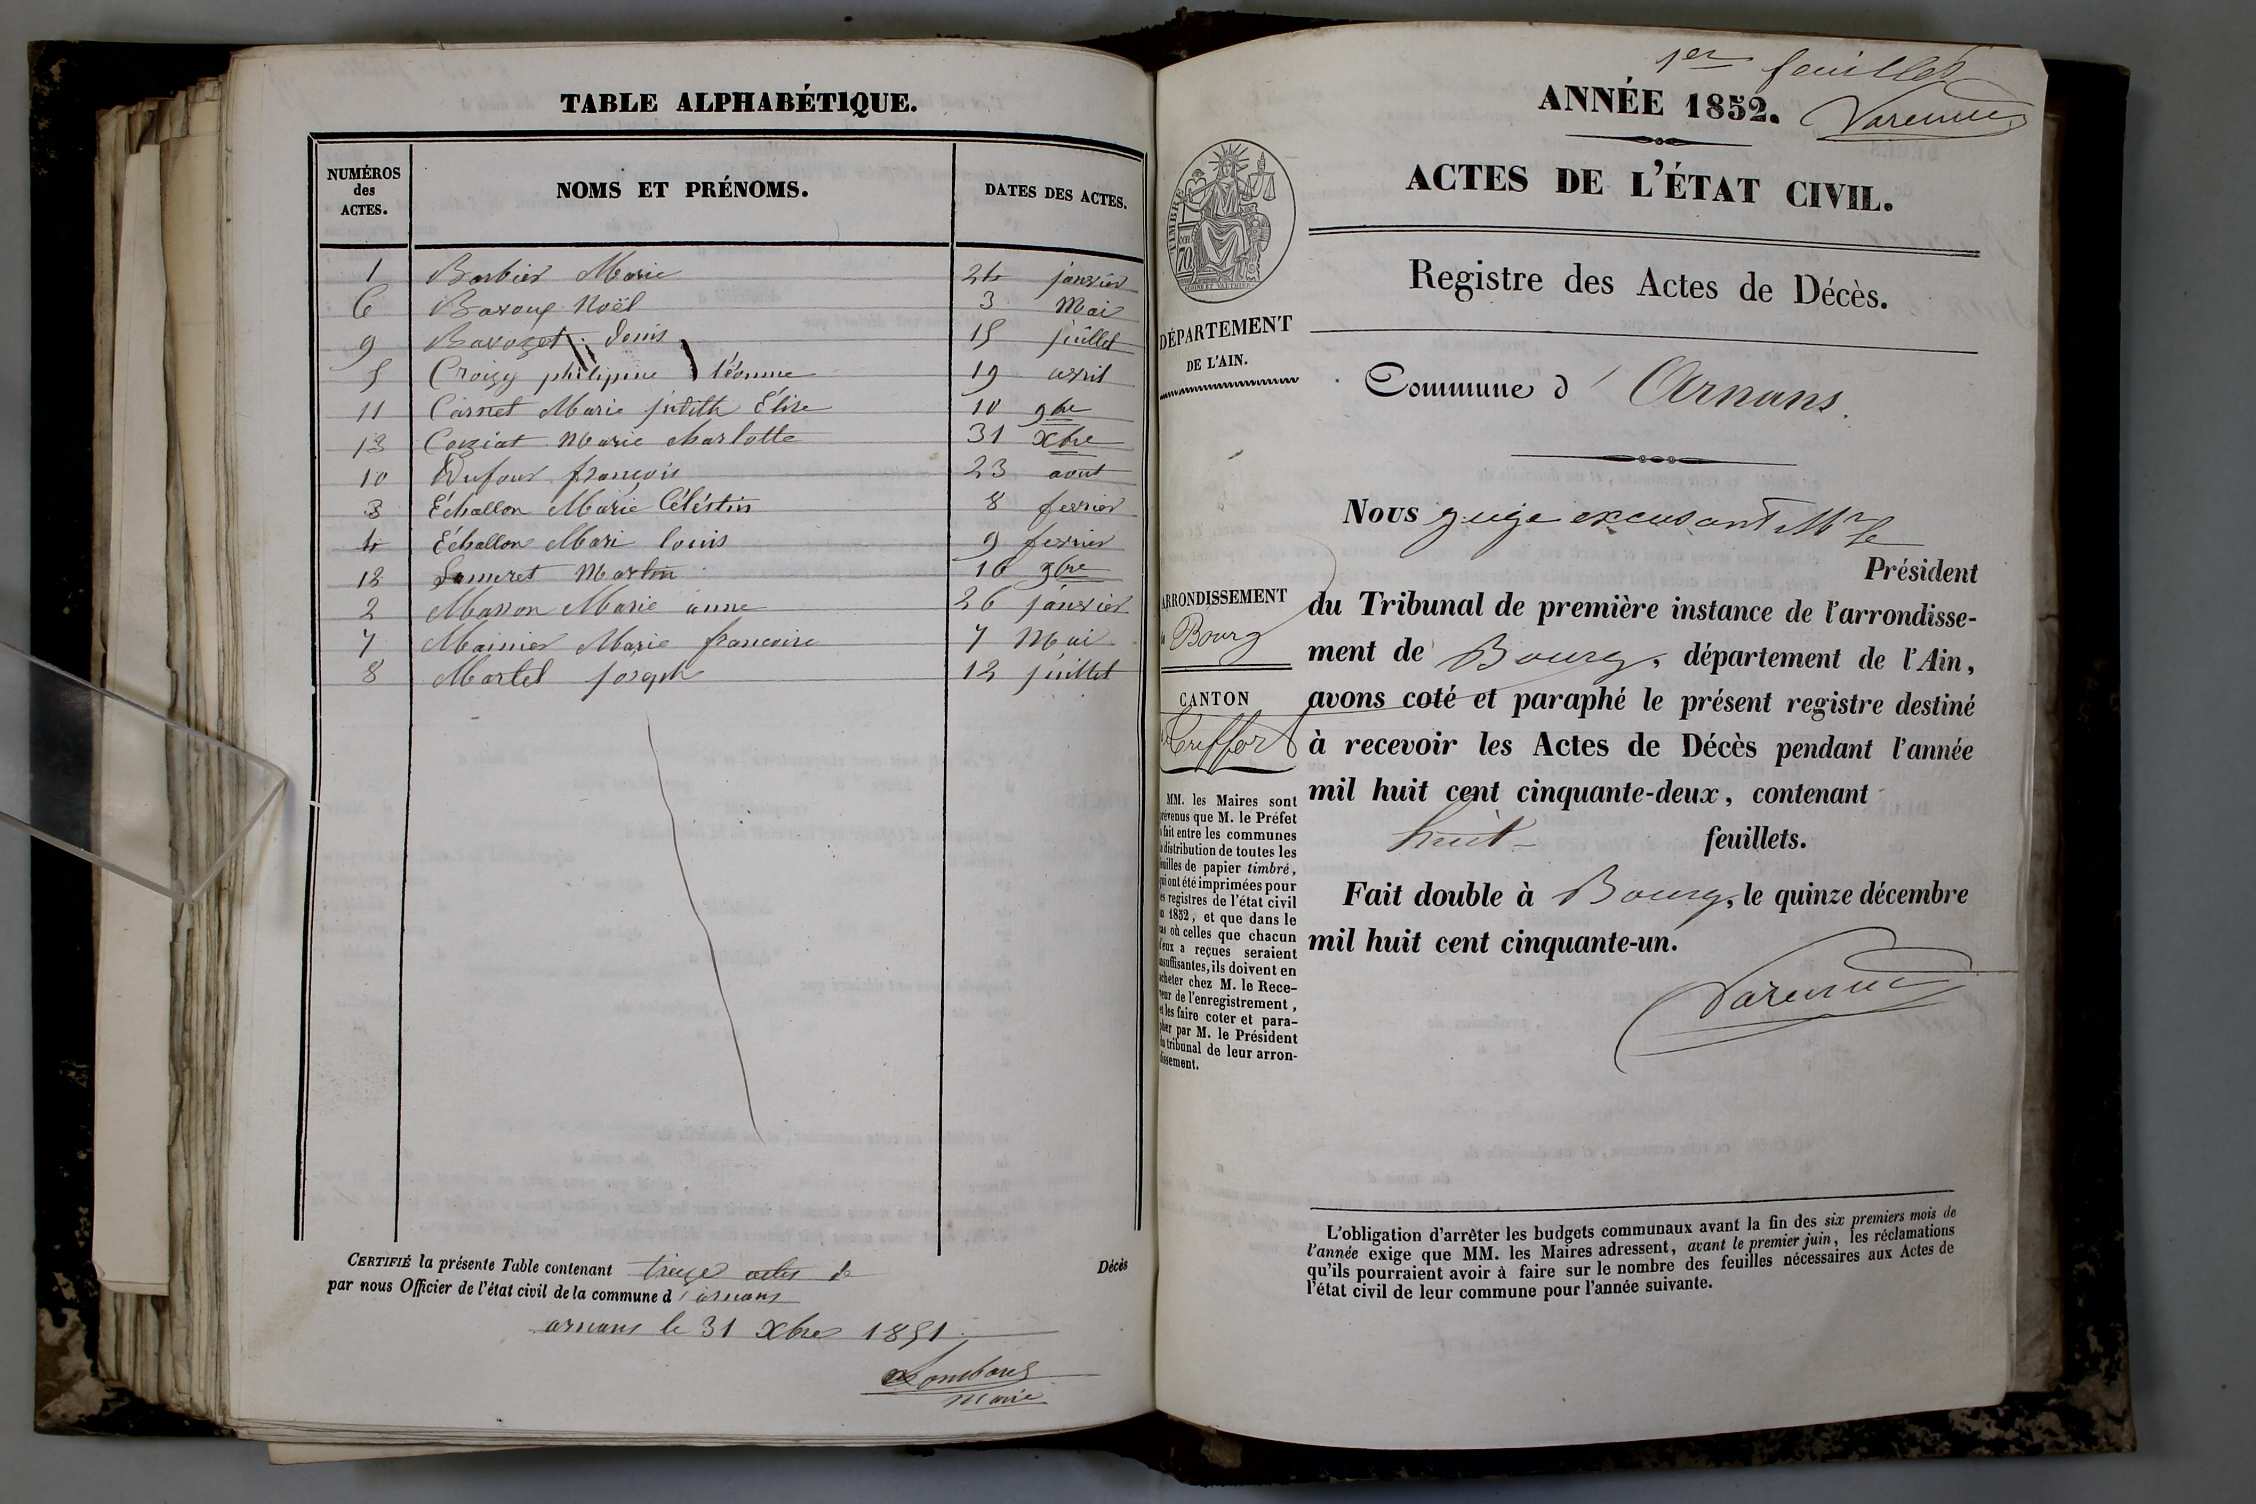 TABLE ALPHABÉTIQUE.
NUMÉROS des ACTES. NOMS ET PRÉNOMS. DATES DES ACTES.
1 Barbier Marie 24 janvier
6 Baroux Noël 3 Mai
9 Bavozet Denis 15 juillet
5 Croizy philipine léonne 19 avril
11 Carnet Marie judith Élise 10 9bre
13 Coiziat Marie charlotte 31 Xbre
10 Dufour françois 23 aout
3 Échallon Marie Céléstin 8 fevrier
4 Échallon Mari louis 9 fevrier
12 Martin 16 9bre
2 Masson Marie anne 26 janvier
7 Mainier Marie francoise 7 Mai
8 Martel joseph 12 juillet
CERTIFIÉ la présente Table contenant treize actes de Décès
par nous Officier de l'état civil de la commune d'arnans
arnans le 31 Xbre 1851.
Lombard
Maire
1er feuillet
ANNÉE 1852.
Varenne
ACTES DE L'ÉTAT CIVIL.
Registre des Actes de Décès.
Commune d'Arnans.
TIMBRE
70
DÉPARTEMENT
DE L'AIN.
ARRONDISSEMENT
Bourg
CANTON
Treffort
MM. les Maires sont
prévenus que M. le Préfet
a fait entre les communes
la distribution de toutes les
feuilles de papier timbré,
qui ont été imprimées pour
les registres de l'état civil
en 1852, et que dans le
cas où celles que chacun
d'eux a reçues seraient
insuffisantes, ils doivent en
acheter chez M. le Rece-
veur de l'enregistrement,
et les faire coter et para-
pher par M. le Président
du tribunal de leur arron-
dissement.
Nous juge excusant Mr le
Président
du Tribunal de première instance de l'arrondisse-
ment de Bourg, département de l'Ain,
avons coté et paraphé le présent registre destiné
à recevoir les Actes de Décès pendant l'année
mil huit cent cinquante-deux, contenant
huit feuillets.
Fait double à Bourg, le quinze décembre
mil huit cent cinquante-un.
Varenne
L'obligation d'arrêter les budgets communaux avant la fin des six premiers mois de
l'année exige que MM. les Maires adressent, avant le premier juin, les réclamations
qu'ils pourraient avoir à faire sur le nombre des feuilles nécessaires aux Actes de
l'état civil de leur commune pour l'année suivante.